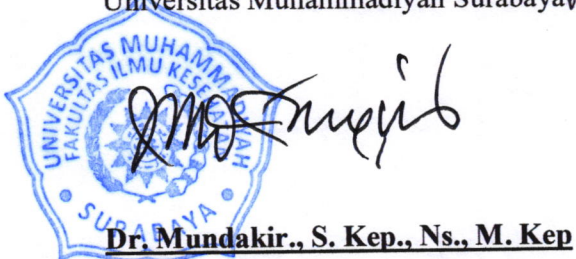 Universitas Muhammadiyah Surabaya
UNIVERSITAS MUHAMMADIYAH
FAKULTAS ILMU KESEHATAN
SURABAYA
Dr. Mundakir., S. Kep., Ns., M. Kep